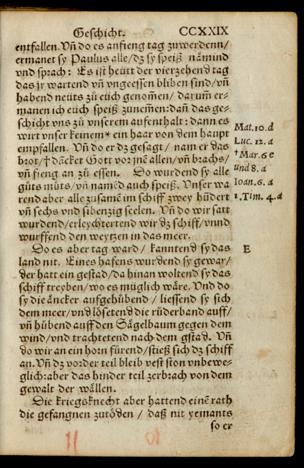 Geschicht. CCXXIX
entfallen. Vñ do es anfieng tag zuwerdenn/
ermanet sy Paulus alle/dz sy speiß nämind
vnd sprach: Es ist heütt der vierzehend tag
das jr wartend vñ vngeessen bliben sind/vñ
habend neüts zů eüch genomẽ/ darum̃ er-
manen ich eüch speiß zunemẽ: dañ das ge-
schicht vns zů vnserem auffenthalt: dann es
wirt vnser keinem* ein haar von dem haupt
empfallen. Vñ do er dz gesagt/ nam er das
brot/†dãcket Gott vor jnẽ allen/vñ brachs/
vñ fieng an zů essen. Do wurdend sy alle
gůts můts/vñ namẽd auch speiß. Vnser wa
rend aber alle zusamẽ im schiff zwey hũdert
vñ sechs vnd sibenzig seelen. Vñ do wir satt
wurdend/erleychtertend wir dz schiff/vnnd
wurffend den weytzen in das meer.
Do es aber tag ward/ kantend sy das
land nit. Eines hafens wurdend sy gewar/
der hatt ein gestad/da hinan woltend sy das
schiff treyben/wo es müglich wäre. Vnd do
sy die äncker auffgehũbend/ liessend sy sich
dem meer/vnd lösetend die růderband auff/
vñ hůbend auff den Sägelbaum gegen dem
wind/vnd trachtetend nach dem gstad. Vñ
do wir an ein horn fürend/stieß sich dz schiff
an. Vñ dz vorder teil bleib vest ston vnbewe-
glich: aber das hinder teil zerbrach von dem
gewalt der wällen.
Die kriegsknecht aber hattend einẽ rath
die gefangnen zutöden/ daß nit yemants
so er
Mat. 10. d
Luc. 12. a
†Mar. 6 e
und 8. a
Ioan. 6. a
1. Tim. 4. a
E